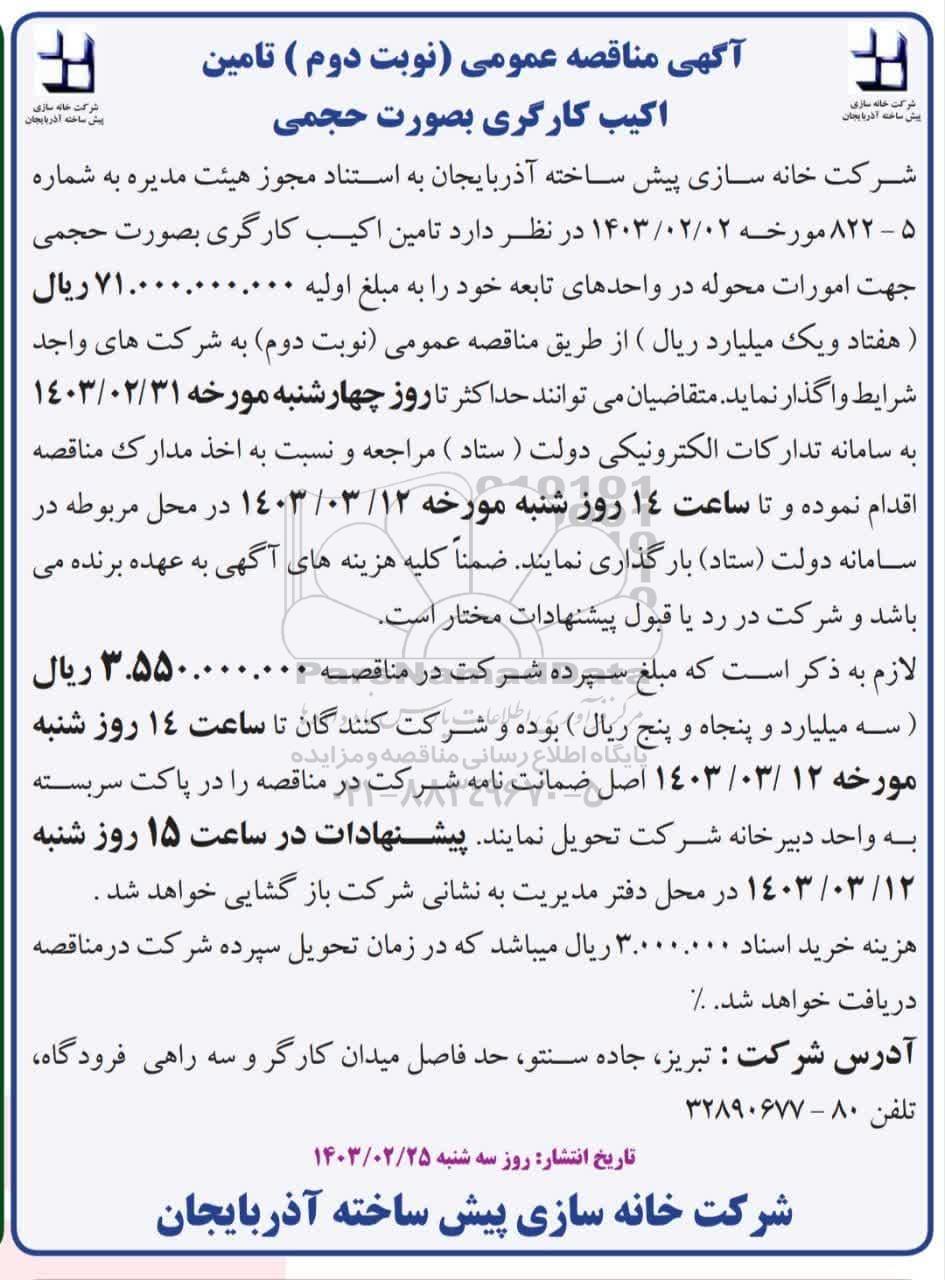 شرکت خانه سازی
پیش ساخته آذربایجان
شرکت خانه سازی
پیش ساخته آذربایجان
آگهی مناقصه عمومی (نوبت دوم ) تامین
اکیپ کارگری بصورت حجمی
شرکت خانه سازی پیش ساخته آذربایجان به استناد مجوز هیئت مدیره به شماره
۵ – ۸۲۲ مورخه ۱۴۰۳/۰۲/۰۲ در نظر دارد تامین اکیپ کارگری بصورت حجمی
جهت امورات محوله در واحدهای تابعه خود را به مبلغ اولیه ۷۱.۰۰۰.۰۰۰.۰۰۰ ریال
( هفتاد ویک میلیارد ریال ) از طریق مناقصه عمومی (نوبت دوم) به شرکت های واجد
شرایط واگذار نماید. متقاضیان می توانند حداکثر تا روز چهارشنبه مورخه ۱۴۰۳/۰۲/۳۱
به سامانه تدارکات الکترونیکی دولت ( ستاد ) مراجعه و نسبت به اخذ مدارک مناقصه
اقدام نموده و تا ساعت ۱۴ روز شنبه مورخه ۱۲/ ۰۳/ ۱۴۰۳ در محل مربوطه در
سامانه دولت (ستاد) بارگذاری نمایند. ضمناً کلیه هزینه های آگهی به عهده برنده می
باشد و شرکت در رد یا قبول پیشنهادات مختار است.
لازم به ذکر است که مبلغ سپرده شرکت در مناقصه ۳.۵۵۰.۰۰۰.۰۰۰ ریال
( سه میلیارد و پنجاه و پنج ریال ) بوده و شرکت کنندگان تا ساعت ۱۴ روز شنبه
مورخه ۱۲ /۰۳/ ۱۴۰۳ اصل ضمانت نامه شرکت در مناقصه را در پاکت سربسته
به واحد دبیرخانه شرکت تحویل نمایند. پیشنهادات در ساعت ۱۵ روز شنبه
۱۲/ ۰۳/ ۱۴۰۳ در محل دفتر مدیریت به نشانی شرکت باز گشایی خواهد شد .
هزینه خرید اسناد ۳.۰۰۰.۰۰۰ ریال میباشد که در زمان تحویل سپرده شرکت درمناقصه
دریافت خواهد شد. ٪
آدرس شرکت : تبریز، جاده سنتو، حد فاصل میدان کارگر و سه راهی فرودگاه،
تلفن ۸۰ – ۳۲۸۹۰۶۷۷
تاریخ انتشار: روز سه شنبه ۱۴۰۳/۰۲/۲۵
شرکت خانه سازی پیش ساخته آذربایجان
ParsNamadData
پایگاه اطلاع رسانی مناقصه و مزایده
۰۲۱-۸۸۳۴۹۶۷۰-۵